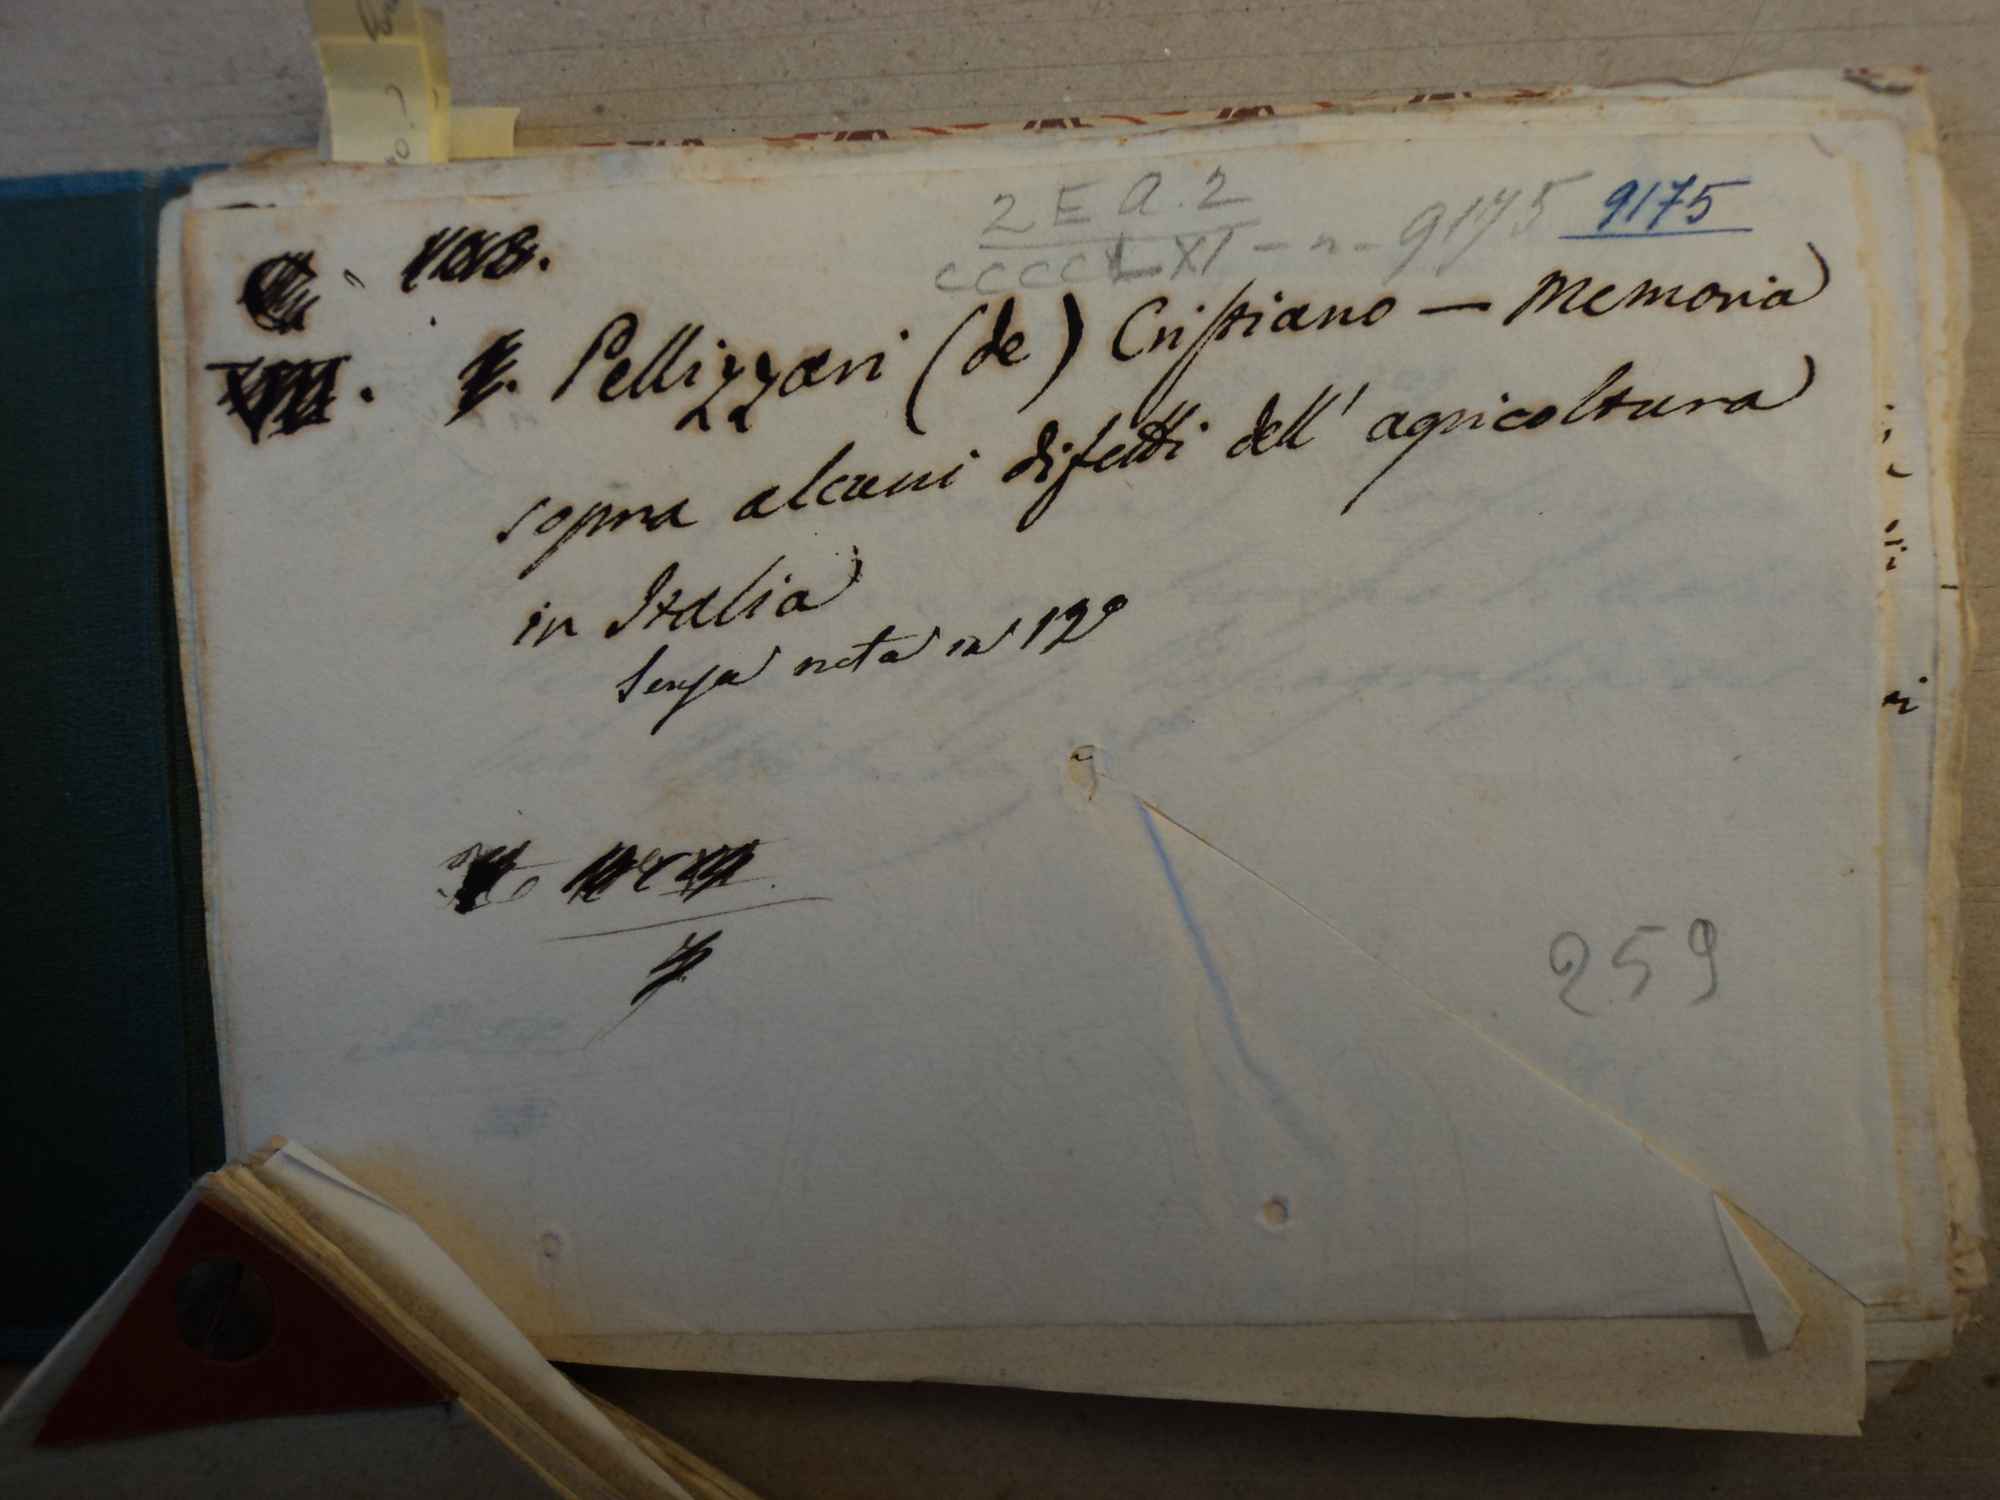 2 E A. 2
CCCCLXI - n - 9175 9175
Pellizzari (de) Cristiano — Memoria
sopra alcuni difetti dell' agricoltura
in Italia
senza nota in 12º
259